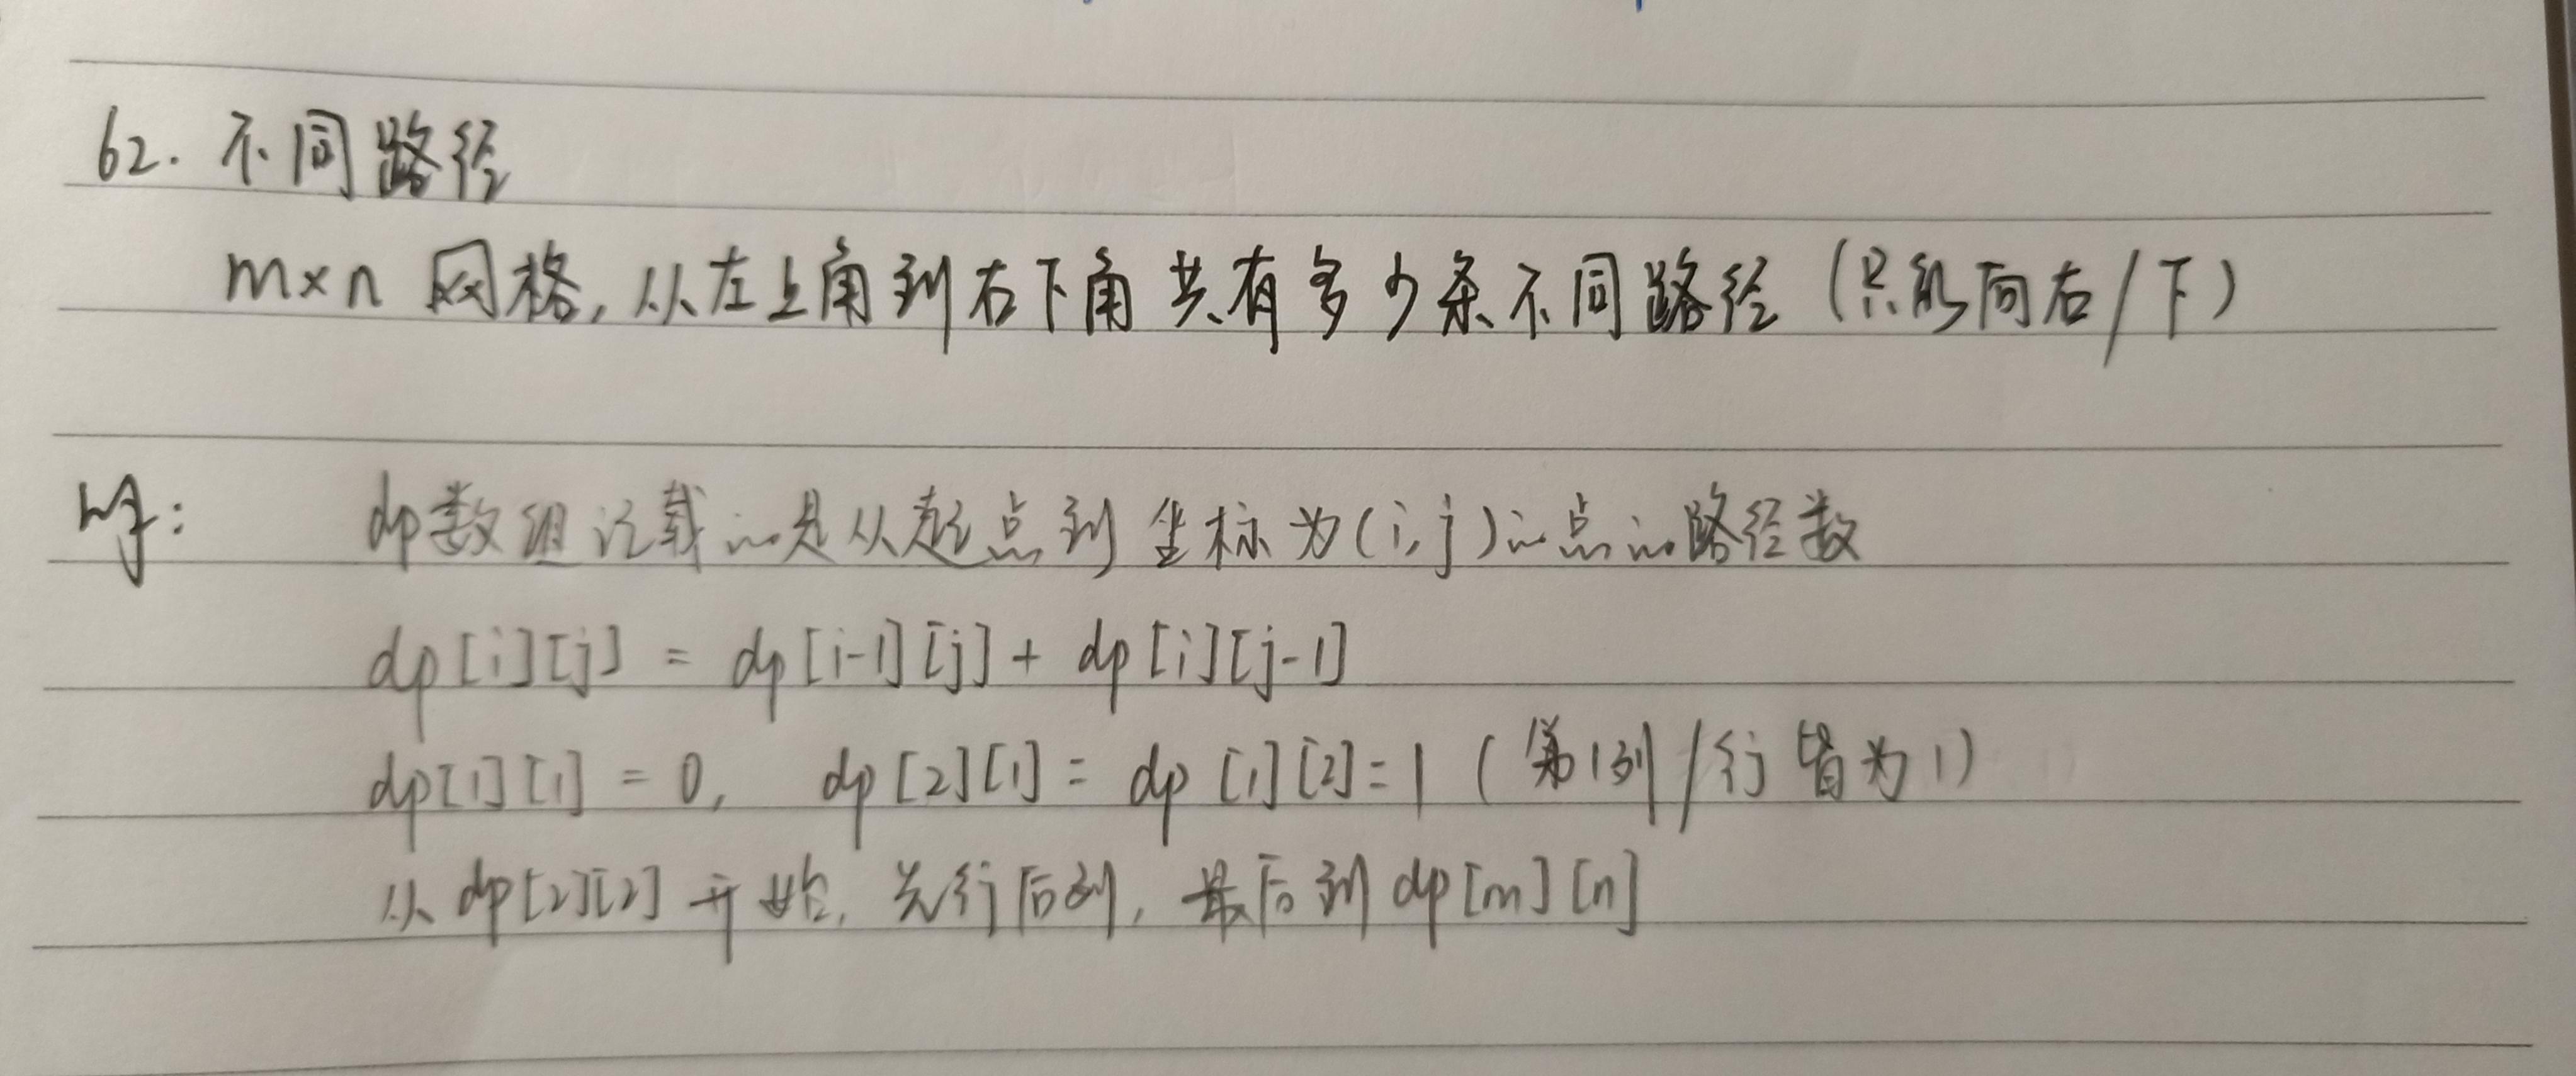 62. 不同路径
m×n 网格, 从左上角到右下角共有多少条不同路径 (只能向右/下)
解: dp数组记载的是从起点到坐标为(i,j)的点的路径数
dp[i][j] = dp[i-1][j] + dp[i][j-1]
dp[1][1] = 0, dp[2][1] = dp[1][2] = 1 (第1列/行皆为1)
从dp[2][2]开始, 先行后列, 最后到dp[m][n]